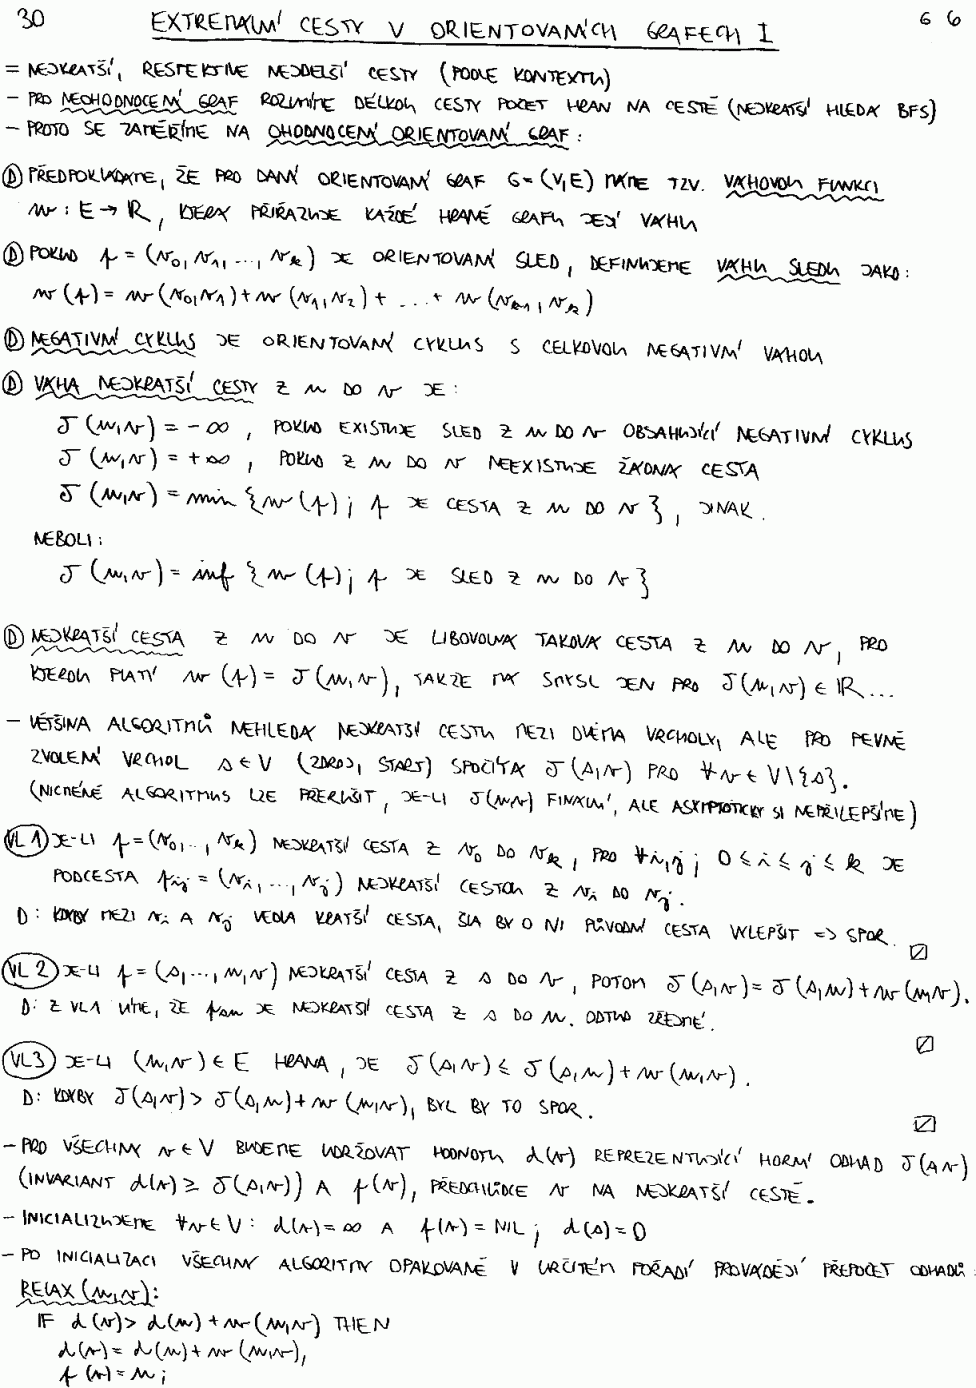 30 EXTREMÁLNÍ CESTY V ORIENTOVANÝCH GRAFECH I G6
= NEJKRATŠÍ, RESPEKTIVE NEJDELŠÍ CESTY (PODLE KONTEXTU)
- PRO NEOHODNOCENÝ GRAF ROZUMÍME DÉLKOU CESTY POČET HRAN NA CESTĚ (NEJKRATŠÍ HLEDÁ BFS)
- PROTO SE ZAMĚŘÍME NA OHODNOCENÝ ORIENTOVANÝ GRAF:
Ⓓ PŘEDPOKLÁDÁME, ŽE PRO DANÝ ORIENTOVANÝ GRAF G=(V,E) MÁME TZV. VÁHOVOU FUNKCI
w: E → ℝ, KTERÁ PŘIŘAZUJE KAŽDÉ HRANĚ GRAFU JEJÍ VÁHU
Ⓓ POKUD p = (v₀, v₁, ..., vₖ) JE ORIENTOVANÝ SLED, DEFINUJEME VÁHU SLEDU JAKO:
w(p) = w(v₀,v₁) + w(v₁,v₂) + ... + w(vₖ₋₁,vₖ)
Ⓓ NEGATIVNÍ CYKLUS JE ORIENTOVANÝ CYKLUS S CELKOVOU NEGATIVNÍ VÁHOU
Ⓓ VÁHA NEJKRATŠÍ CESTY Z u DO v JE:
δ(u,v) = -∞, POKUD EXISTUJE SLED Z u DO v OBSAHUJÍCÍ NEGATIVNÍ CYKLUS
δ(u,v) = +∞, POKUD Z u DO v NEEXISTUJE ŽÁDNÁ CESTA
δ(u,v) = min {w(p); p JE CESTA Z u DO v}, JINAK.
NEBOLI:
δ(u,v) = inf {w(p); p JE SLED Z u DO v}
Ⓓ NEJKRATŠÍ CESTA Z u DO v JE LIBOVOLNÁ TAKOVÁ CESTA Z u DO v, PRO
KTEROU PLATÍ w(p) = δ(u,v), TAKŽE MÁ SMYSL JEN PRO δ(u,v) ∈ ℝ...
- VĚTŠINA ALGORITMŮ NEHLEDÁ NEJKRATŠÍ CESTU MEZI DVĚMA VRCHOLY, ALE PRO PEVNĚ
ZVOLENÝ VRCHOL s ∈ V (ZDROJ, START) SPOČÍTÁ δ(s,v) PRO ∀v ∈ V\{s}.
(NICMÉNĚ ALGORITMUS LZE PŘERUŠIT, JE-LI δ(u,v) FINÁLNÍ, ALE ASYMPTOTICKY SI NEPŘILEPŠÍME)
VL1 JE-LI p = (v₀,..,vₖ) NEJKRATŠÍ CESTA Z v₀ DO vₖ, PRO ∀i,j; 0 ≤ i ≤ j ≤ k JE
PODCESTA pᵢⱼ = (vᵢ, ..., vⱼ) NEJKRATŠÍ CESTOU Z vᵢ DO vⱼ.
D: KDYBY MEZI vᵢ A vⱼ VEDLA KRATŠÍ CESTA, ŠLA BY O NI PŮVODNÍ CESTA VYLEPŠIT => SPOR.
VL2 JE-LI p = (s,...,u,v) NEJKRATŠÍ CESTA Z s DO v, POTOM δ(s,v) = δ(s,u) + w(u,v).
D: Z VL1 VÍME, ŽE pₛᵤ JE NEJKRATŠÍ CESTA Z s DO u. ODTUD ZŘEJMÉ.
VL3 JE-LI (u,v) ∈ E HRANA, JE δ(s,v) ≤ δ(s,u) + w(u,v).
D: KDYBY δ(s,v) > δ(s,u) + w(u,v), BYL BY TO SPOR.
- PRO VŠECHNY v ∈ V BUDEME UDRŽOVAT HODNOTU d(v) REPREZENTUJÍCÍ HORNÍ ODHAD δ(s,v)
(INVARIANT d(v) ≥ δ(s,v)) A p(v), PŘEDCHŮDCE v NA NEJKRATŠÍ CESTĚ.
- INICIALIZUJEME ∀v ∈ V: d(v) = ∞ A p(v) = NIL; d(s) = 0
- PO INICIALIZACI VŠECHNY ALGORITMY OPAKOVANĚ V URČITÉM POŘADÍ PROVÁDĚJÍ PŘEPOČET ODHADŮ:
RELAX(u,v):
IF d(v) > d(u) + w(u,v) THEN
d(v) = d(u) + w(u,v),
p(v) = u;